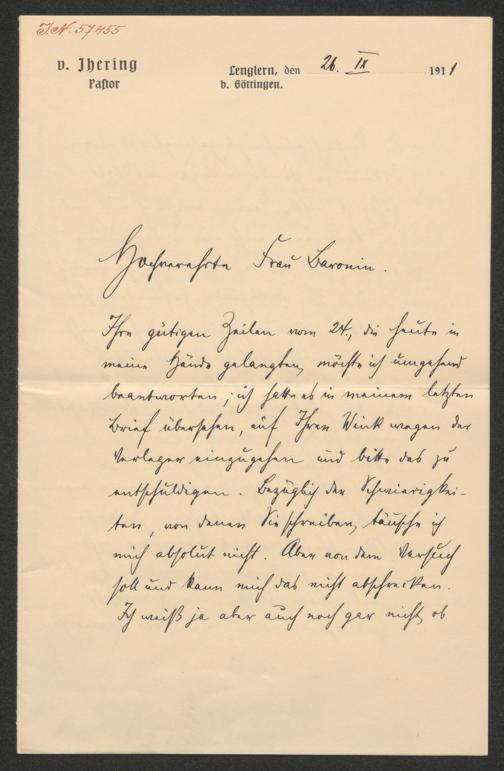 I.N. 57455
v. Ihering
Pastor
Lenglern, den 26. IX 1911
b. Göttingen.
Hochverehrte Frau Baronin.
Ihre gütigen Zeilen vom 24., die heute in
meine Hände gelangten, möchte ich umgehend
beantworten; ich hatte es in meinem letzten
Brief übersehen, auf Ihren Wink wegen der
Verleger einzugehen und bitte das zu
entschuldigen. Bezüglich der Schwierigkei-
ten, von denen Sie schreiben, täusche ich
mich absolut nicht. Aber von dem Versuch
soll und kann mich das nicht abschrecken.
Ich weiß ja aber auch noch gar nicht, ob